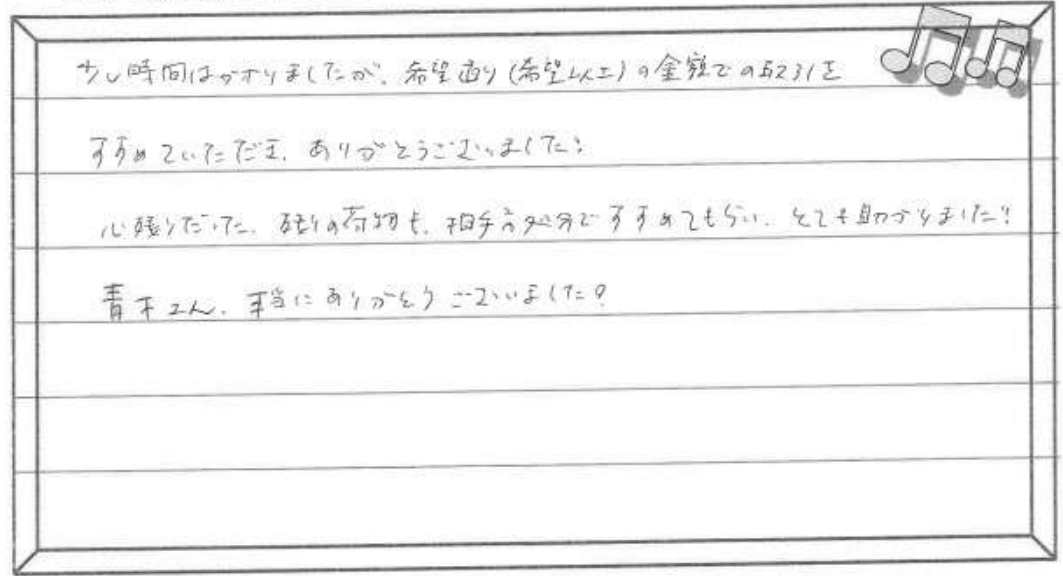 少し時間はかかりましたが、希望通り(希望以上)の金額での取引を
すすめていただき、ありがとうございました!
心残りだった、残りの荷物も、相手方処分ですすめてもらい、とても助かりました!!
青木さん、本当にありがとうございました!